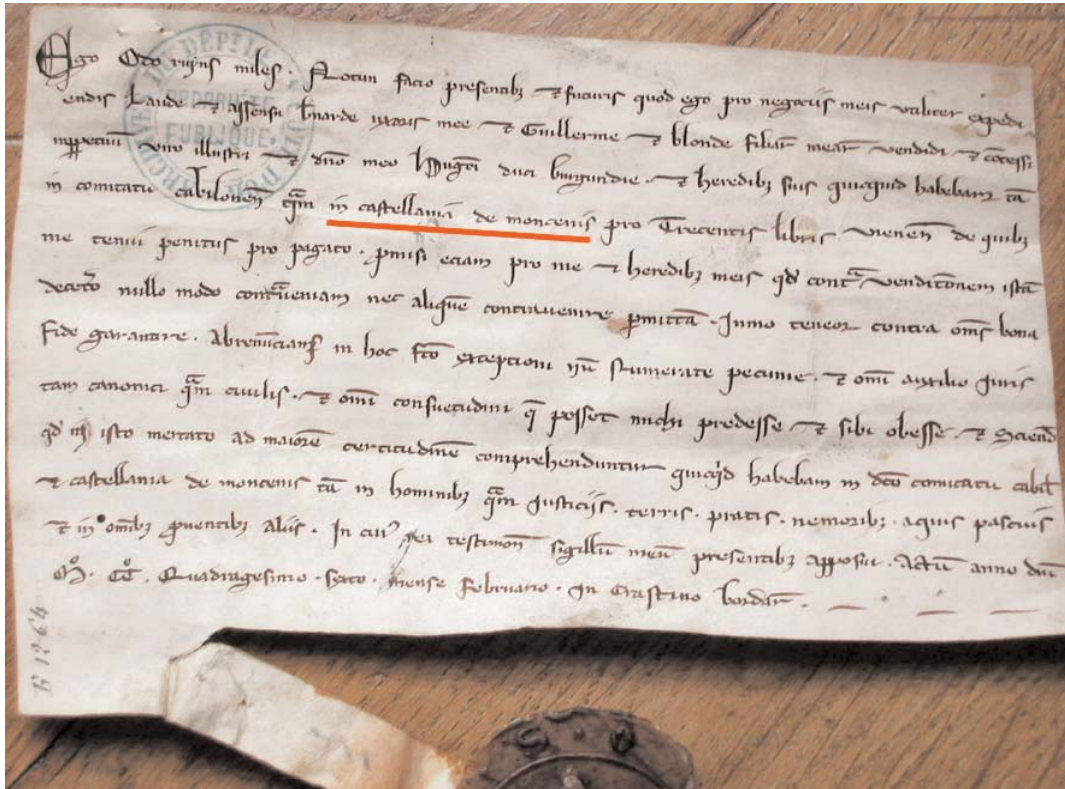 Ego Odo rufus miles. Notum facio presentibꝫ ⁊ futuris quod ego pro negociis meis utiliter expedi
endis laude ⁊ assensu uxoris mee ⁊ Guillerme ⁊ blonde filiaꝝ meaꝝ vendidi ⁊ cōcessi
imꝑpetuū viro illustri ⁊ dn̄o meo hugōi duci burgundie. ⁊ heredibꝫ suis quicquid habebam tā
in comitatu cabilonen̄ qᵃm in castellania de moncenis pro Trecentis libris vienen̄ de quibꝫ
me tenui penitus pro pagato. ꝓmisi eciam pro me ⁊ heredibꝫ meis qd̛ contᵃ vendicōnem istā
decet̛o nullo modo contᵃueniam nec aliquē contravenire ꝑmittā. Inmo teneor contra om̄s bona
fide garantire. Abrenūcians in hoc fc̄o exceptioni nū numerate pecunie. ⁊ om̄i auxilio Juris
tam canonici qᵃm civilis. ⁊ om̄i consuetudini q̄ posset michi predesse ⁊ sibi obesse. ⁊ Sciend̄
qd̛ isto mercato ad maiorē certitudinē comprehenduntur quicqͥd habebam in dc̄o comitatu cabil̄
⁊ castellania de moncenis tā in hominibꝫ qᵃm Justiciis. terris. pratis. nemoribꝫ. aquis pascuis
⁊ in om̄ibꝫ ꝓuentibꝫ aliis. In cuiꝰ rei testimon̄ sigillū meū presentibꝫ apposui. Actū anno dn̄i
Mº. CCº. Quadragesimo. sexto. mense februario. In Crastino bordaꝝ.
B 1264